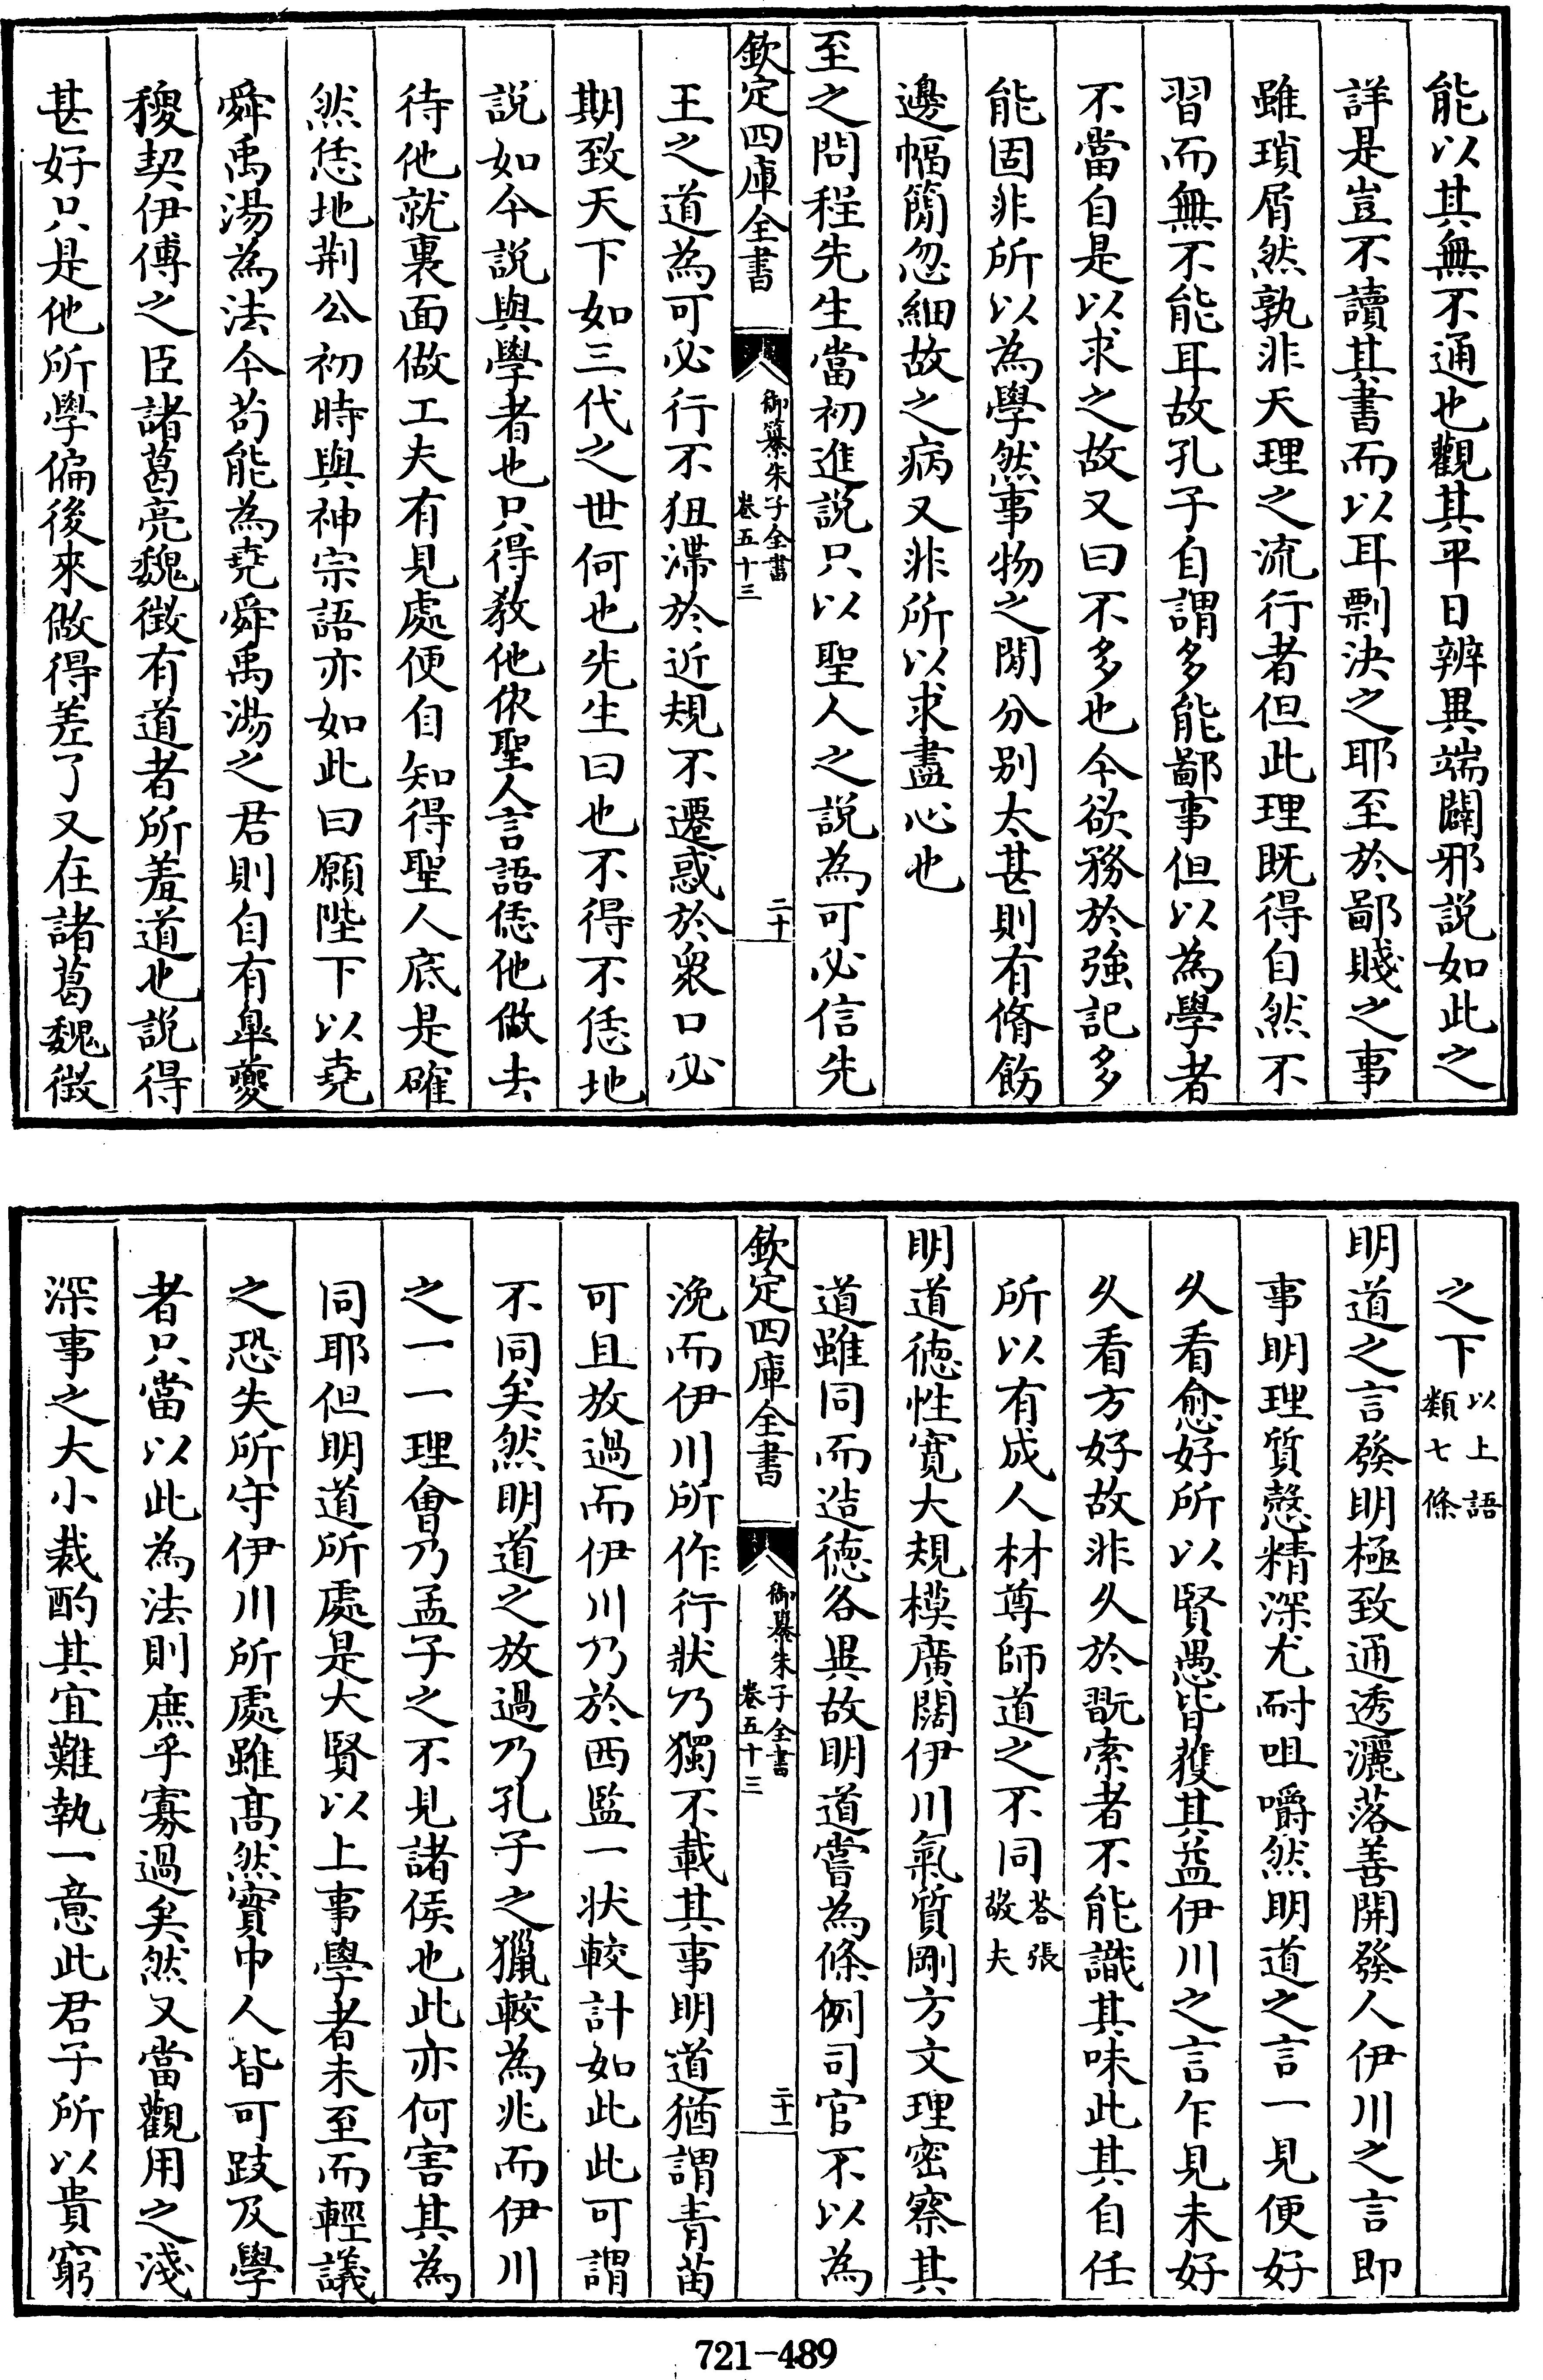 能以其無不通也觀其平日辨異端闢邪說如此之
詳是豈不讀其書而以耳剽決之耶至於鄙賤之事
雖瑣屑然孰非天理之流行者但此理既得自然不
習而無不能耳故孔子自謂多能鄙事但以為學者
不當自是以求之故又曰不多也今欲務於強記多
能固非所以為學然事物之閒分别太甚則有脩飭
邊幅簡忽細故之病又非所以求盡心也
至之問程先生當初進說只以聖人之說為可必信先
欽定四庫全書
御纂朱子全書
卷五十三
二十
王之道為可必行不狃滯於近規不遷惑於衆口必
期致天下如三代之世何也先生曰也不得不恁地
說如今說與學者也只得教他依聖人言語恁他做去
待他就裏面做工夫有見處便自知得聖人底是確
然恁地荆公初時與神宗語亦如此曰願陛下以堯
舜禹湯為法今苟能為堯舜禹湯之君則自有臯夔
稷契伊傅之臣諸葛亮魏徴有道者所羞道也說得
甚好只是他所學偏後來做得差了又在諸葛魏徴
之下
以上語
類七條
明道之言發明極致通透灑落善開發人伊川之言即
事明理質慤精深尤耐咀嚼然明道之言一見便好
久看愈好所以賢愚皆獲其益伊川之言乍見未好
久看方好故非久於翫索者不能識其味此其自任
所以有成人材尊師道之不同
荅張
敬夫
明道徳性寛大規模廣闊伊川氣質剛方文理密察其
道雖同而造徳各異故明道嘗為條例司官不以為
欽定四庫全書
御纂朱子全書
卷五十三
二十一
浼而伊川所作行狀乃獨不載其事明道猶謂青苗
可且放過而伊川乃於西監一狀較計如此此可謂
不同矣然明道之放過乃孔子之獵較為兆而伊川
之一一理會乃孟子之不見諸侯也此亦何害其為
同耶但明道所處是大賢以上事學者未至而輕議
之恐失所守伊川所處雖髙然實中人皆可跂及學
者只當以此為法則庶乎寡過矣然又當觀用之淺
深事之大小裁酌其宜難執一意此君子所以貴窮
721-489